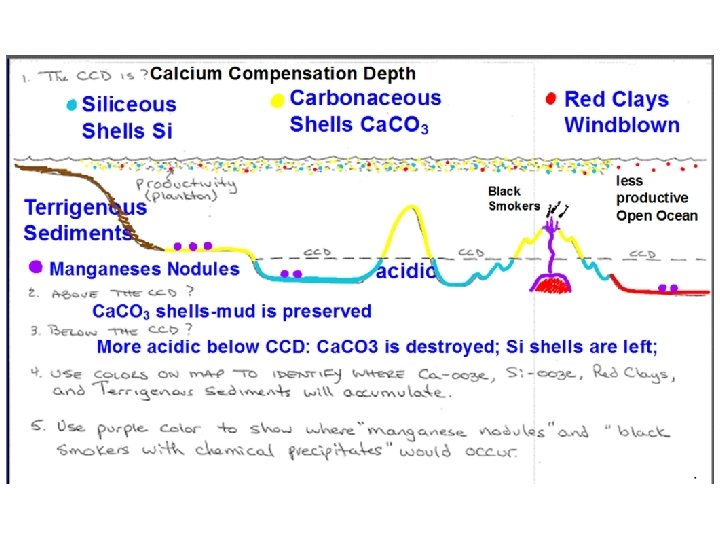 1. THE CCD IS? Calcium Compensation Depth
Siliceous
Shells Si
Carbonaceous
Shells Ca.CO3
Red Clays
Windblown
Productivity
(plankton)
Terrigenous
Sediments
Black
Smokers
less
productive
Open Ocean
CCD
CCD
CCD
Manganeses Nodules
acidic
2. ABOVE THE CCD?
Ca.CO3 shells-mud is preserved
3. BELOW THE CCD?
More acidic below CCD: Ca.CO3 is destroyed; Si shells are left;
4. USE COLORS ON MAP TO IDENTIFY WHERE Ca-ooze, Si-ooze, Red Clays,
and Terrigenous Sediments will accumulate.
5. Use purple color to show where "manganese nodules" and "black
smokers with chemical precipitates" would occur.